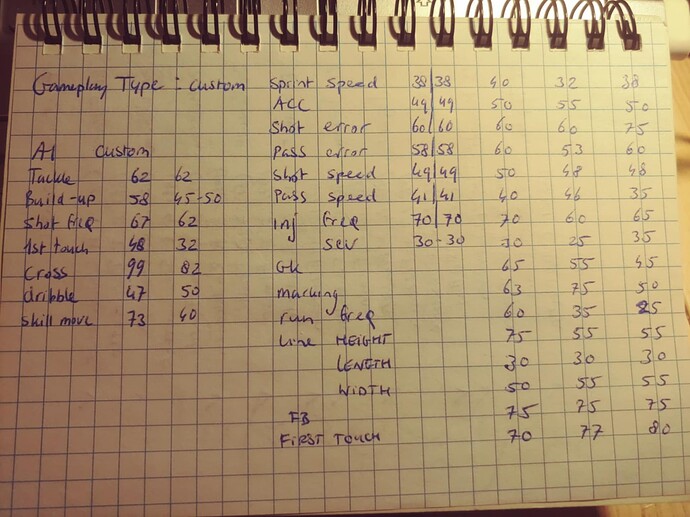 Gameplay Type : custom Sprint speed 38|38 40 32 38
ACC 49|49 50 55 50
Shot error 60|60 60 60 75
AI custom Pass error 58|58 60 53 60
Tackle 62 62 Shot speed 49|49 50 48 48
Build-up 58 45-50 Pass speed 41|41 40 46 35
Shot freq 67 62 inj freq 70|70 70 60 65
1st touch 48 32 sev 30-30 25 35
Cross 99 82 GK 65 55 45
dribble 47 50 marking 63 75 50
skill move 73 40 run freq 60 35 25
Line HEIGHT 75 55 55
LENGTH 30 30 30
WIDTH 50 55 55
FB 75 75 75
FIRST TOUCH 70 77 80